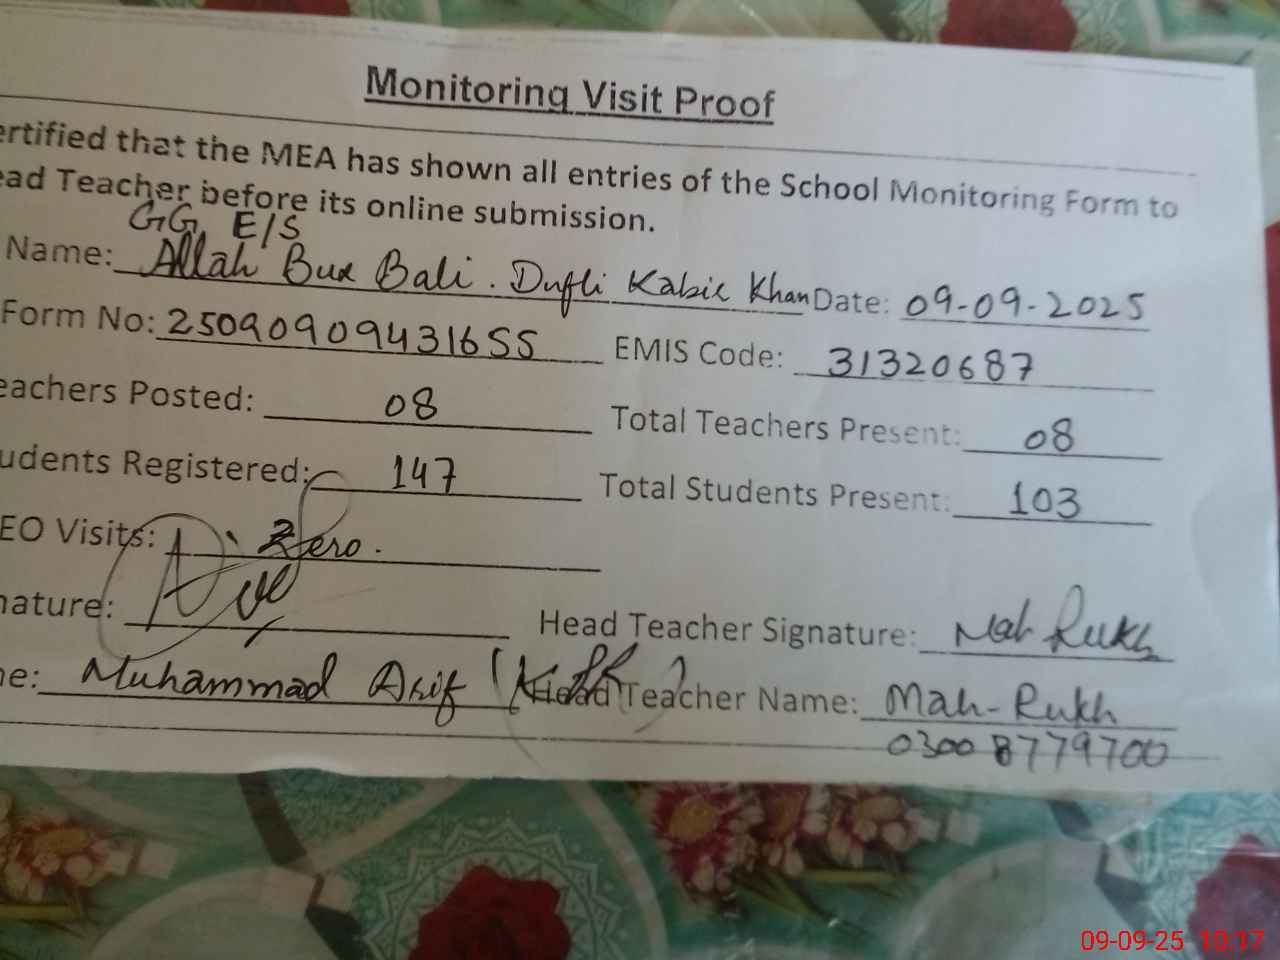 Monitoring Visit Proof
ertified that the MEA has shown all entries of the School Monitoring Form to
ead Teacher before its online submission.
GG E/S
Name: Allah Bux Bali. Dufli Kabir Khan Date: 09-09-2025
Form No: 25090909431655 EMIS Code: 31320687
eachers Posted: 08 Total Teachers Present: 08
udents Registered: 147 Total Students Present: 103
EO Visits: Zero.
nature: Head Teacher Signature: Mah Rukh
ne: Muhammad Arif Head Teacher Name: Mah-Rukh
0300 8779700
09-09-25 10:17